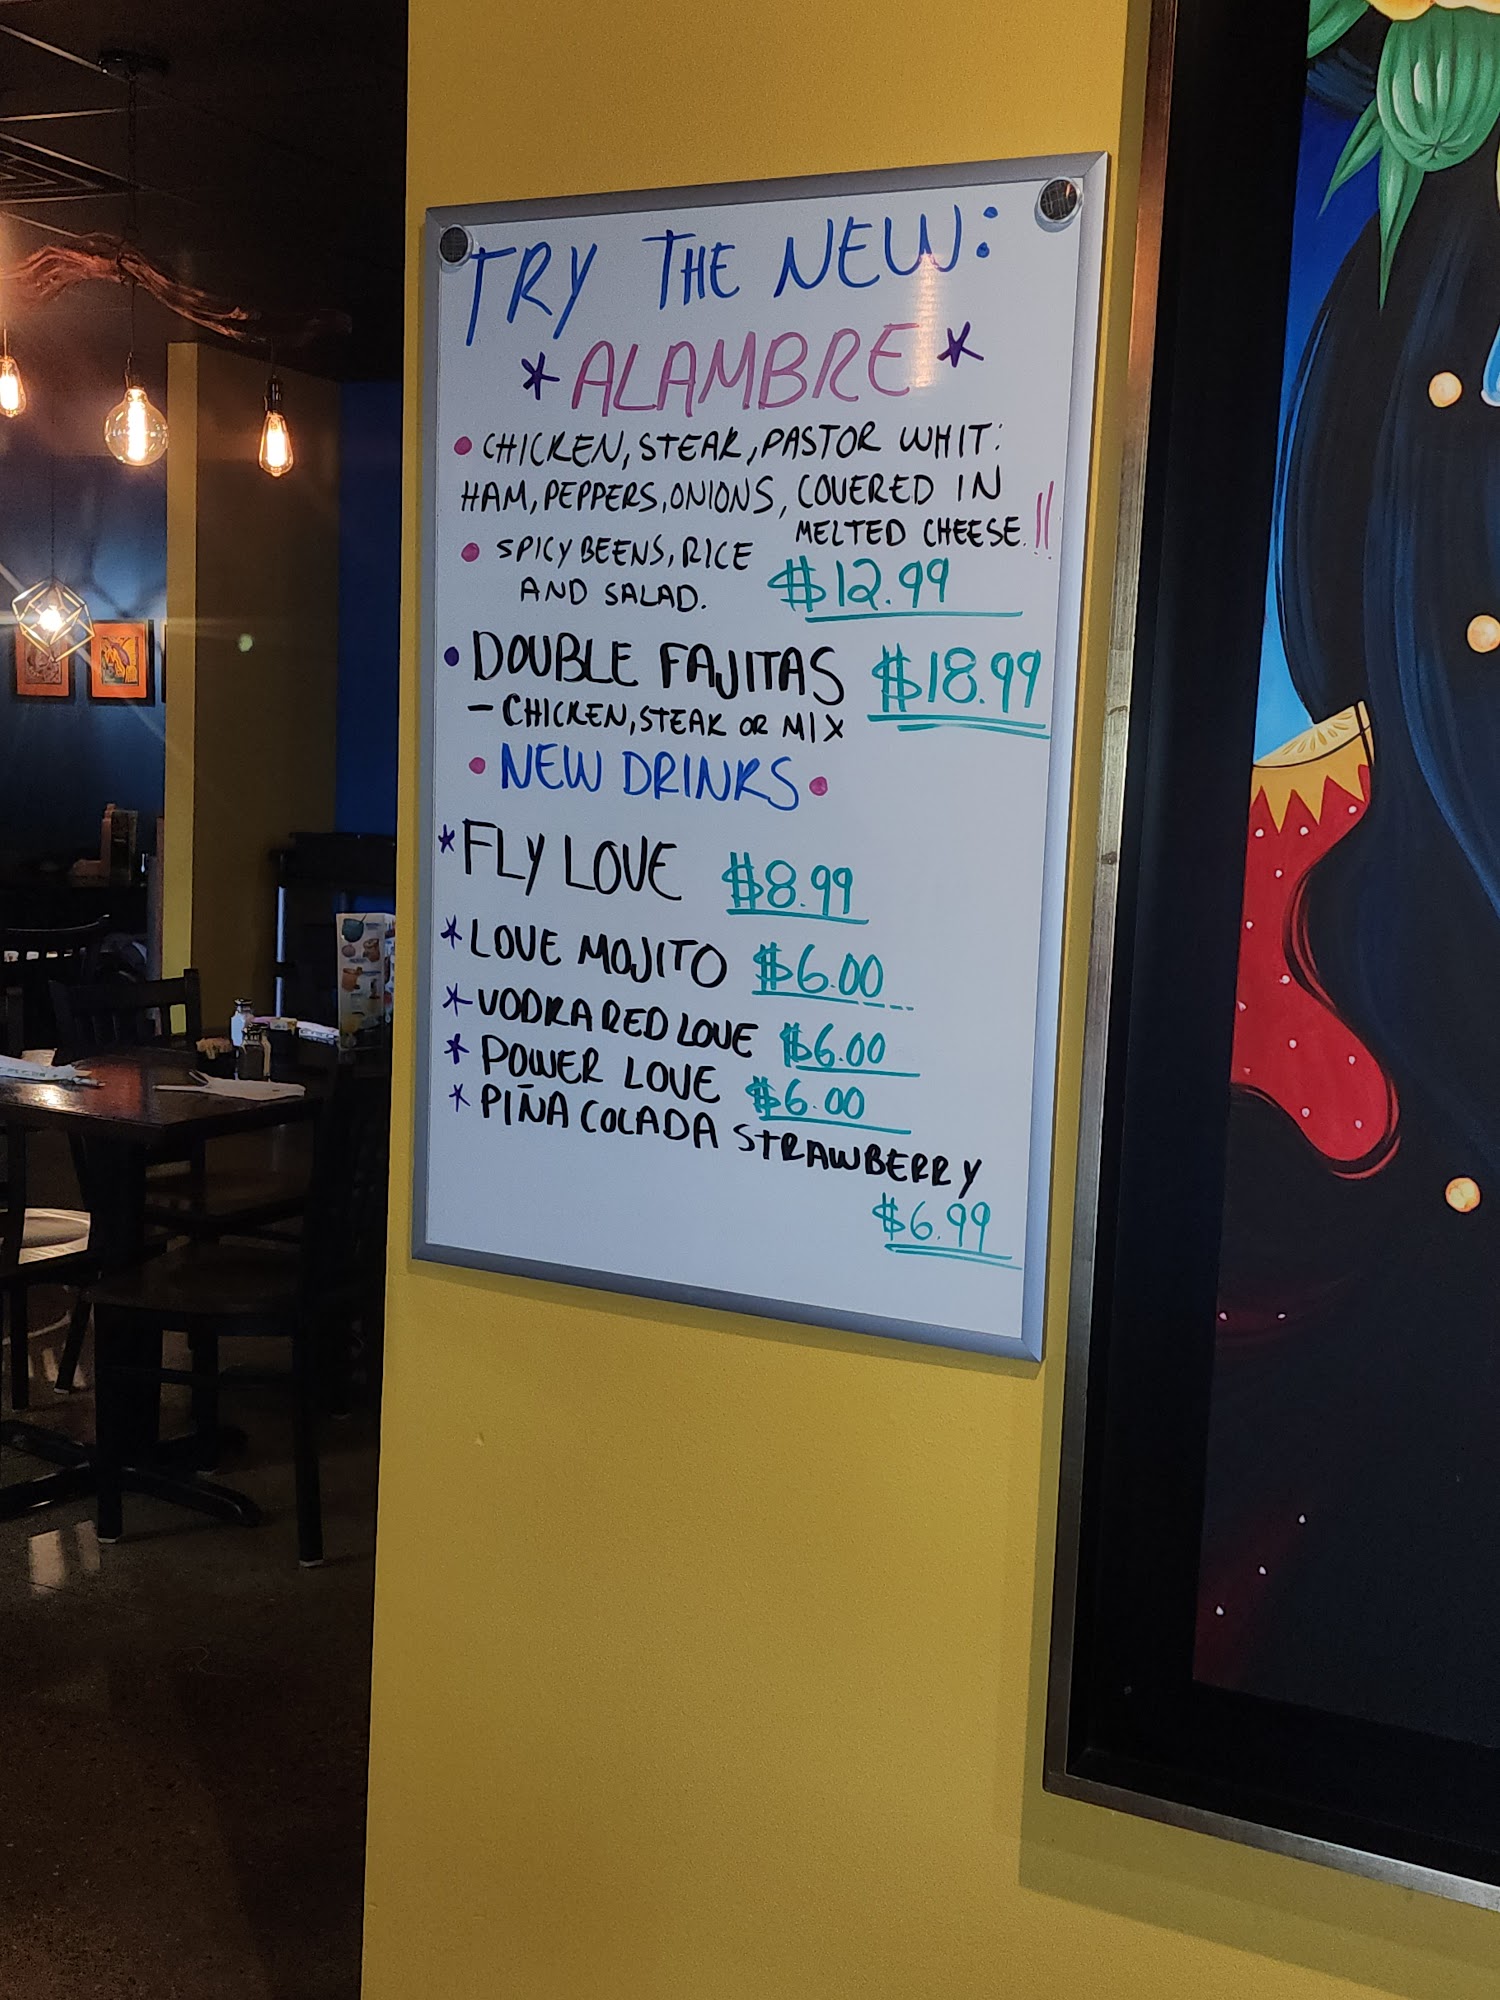 TRY THE NEW:
* ALAMBRE *
• CHICKEN, STEAK, PASTOR WHIT:
HAM, PEPPERS, ONIONS, COVERED IN
MELTED CHEESE. !!
• SPICY BEENS, RICE
AND SALAD.
$12.99
• DOUBLE FAJITAS $18.99
- CHICKEN, STEAK OR MIX
• NEW DRINKS •
* FLY LOVE $8.99
* LOVE MOJITO $6.00
* VODKA RED LOVE $6.00
* POWER LOVE $6.00
* PIÑA COLADA STRAWBERRY
$6.99